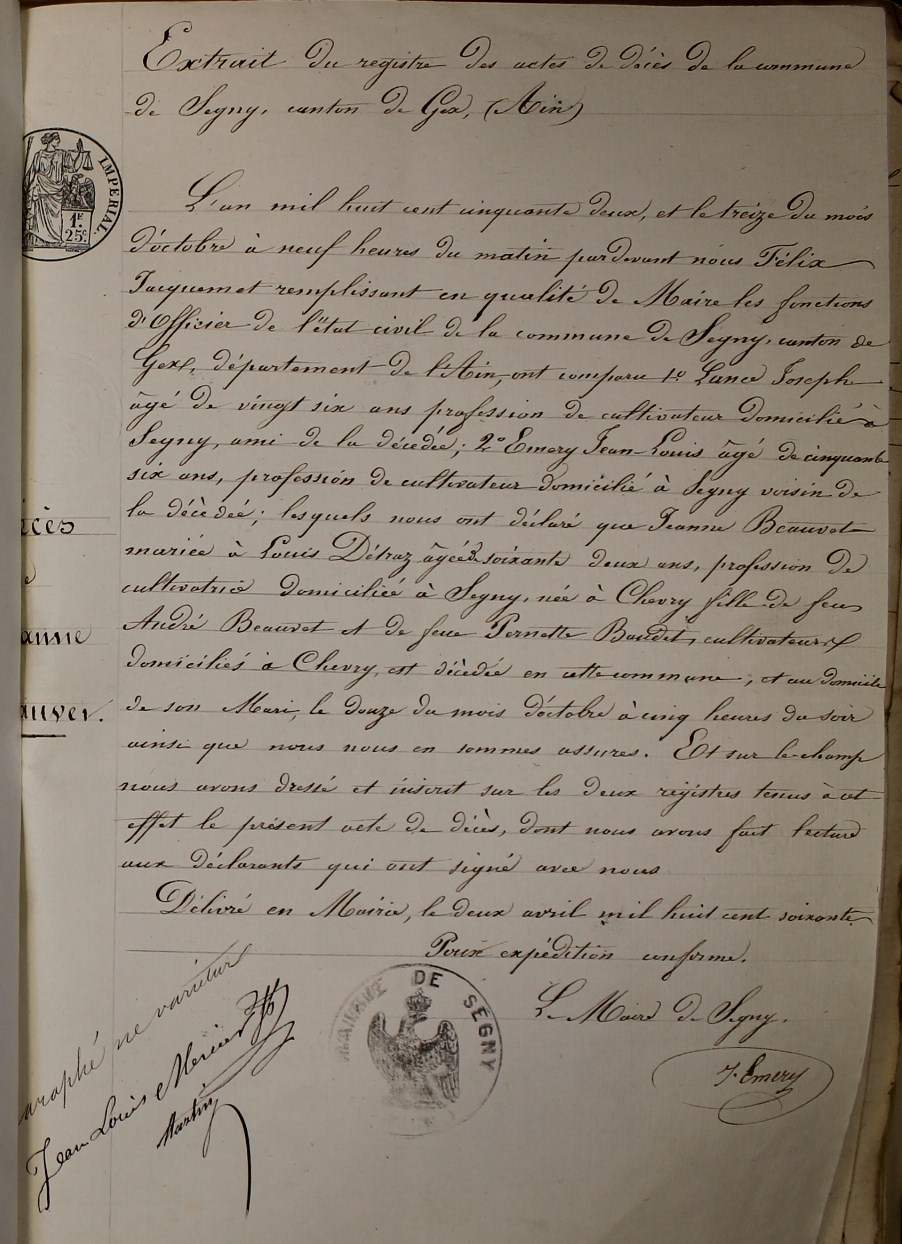 Extrait du registre des actes de décès de la commune
de Segny, canton de Gex, (Ain)
IMPERIAL.
1F.
25c
L'an mil huit cent cinquante deux, et le treize du mois
d'octobre à neuf heures du matin pardevant nous Félix
Jacquemet remplissant en qualité de Maire les fonctions
d'Officier de l'état civil de la commune de Segny, canton de
Gex, département de l'Ain, ont comparu 1o Lance Joseph
âgé de vingt six ans profession de cultivateur domicilié à
Segny, ami de la décédée; 2o Emery Jean-Louis âgé de cinquante
six ans, profession de cultivateur domicilié à Segny voisin de
la décèdée; lesquels nous ont déclaré que Jeanne Beauvet
mariée à Louis Détraz âgée de soixante deux ans, profession de
cultivatrice domiciliée à Segny, née à Chevry fille de feu
André Beauvet et de feue Pernette Baudet, cultivateurs
domiciliés à Chevry, est décèdée en cette commune, et au domicile
de son Mari, le douze du mois d'octobre à cinq heures du soir
ainsi que nous nous en sommes assurés. Et sur le champ
nous avons dressé et inscrit sur les deux registres tenus à cet
effet le présent acte de décès, dont nous avons fait lecture
aux déclarants qui ont signé avec nous
Délivré en Mairie, le deux avril mil huit cent soixante
Pour expédition conforme.
Le Maire de Segny.
J. Emery
DE SEGNY
écès
e
anne
auver.
araphé ne varietur
Jean Louis Mercier
Martin